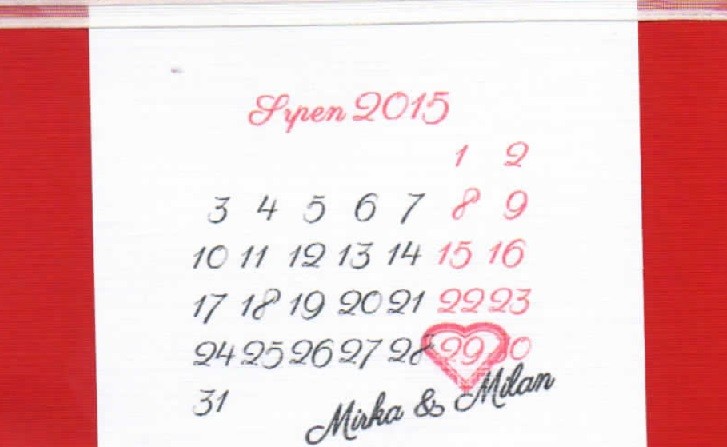 Srpen 2015
1 2
3 4 5 6 7 8 9
10 11 12 13 14 15 16
17 18 19 20 21 22 23
24 25 26 27 28 29 30
31
Mirka & Milan